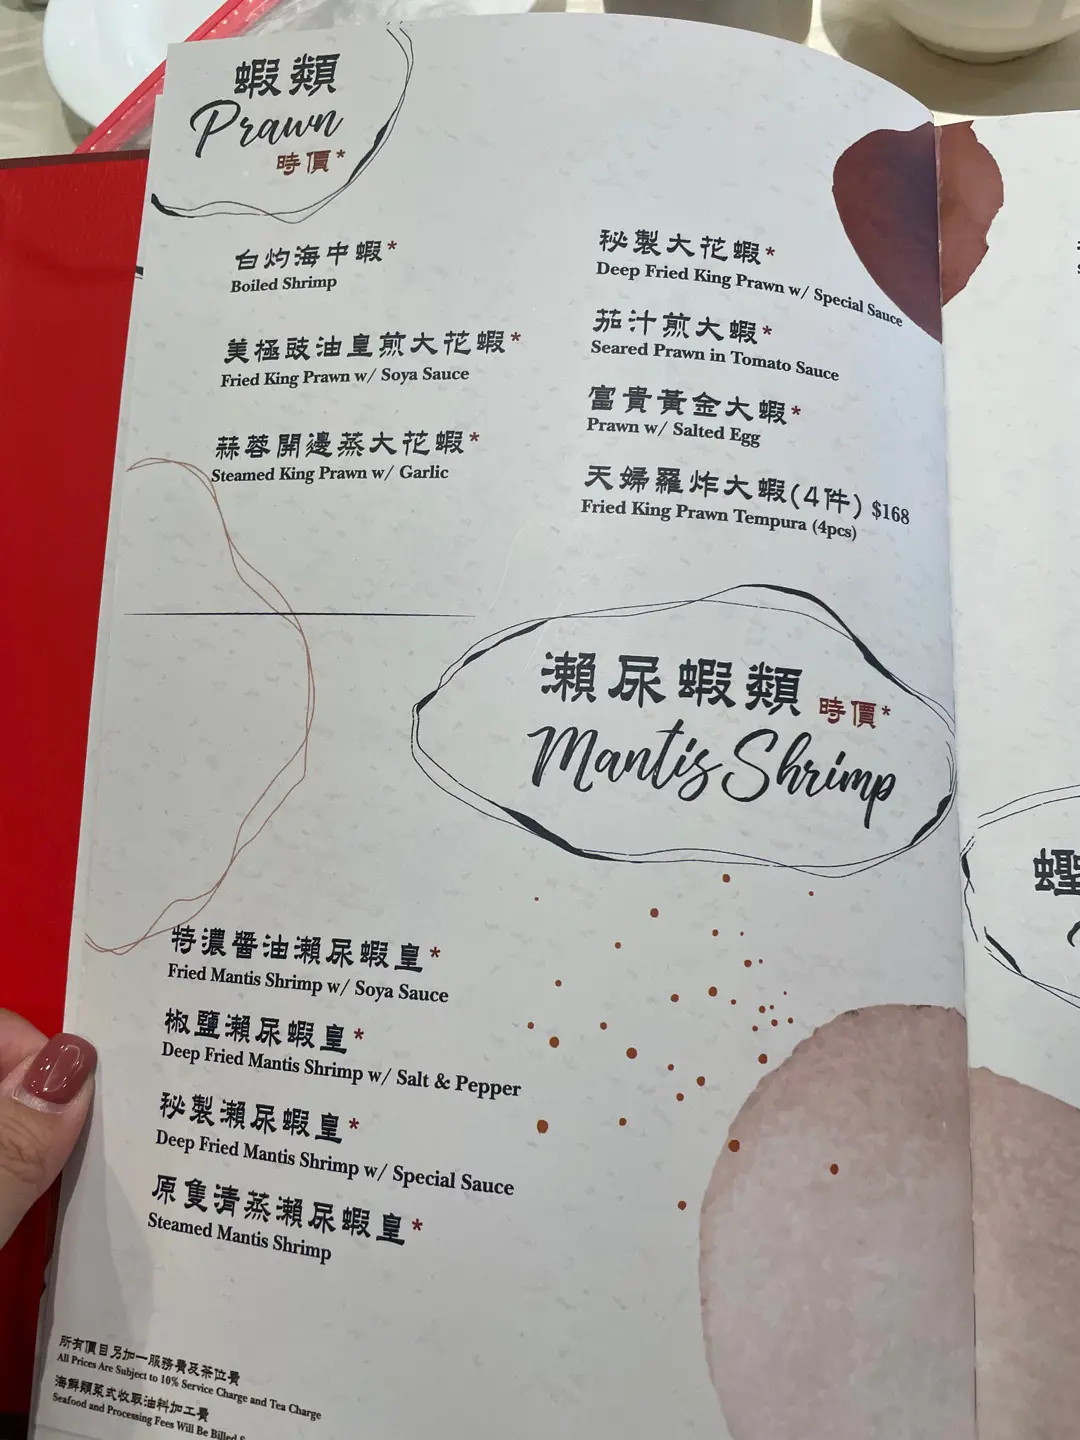 蝦類
Prawn
時價*
白灼海中蝦*
Boiled Shrimp
美極豉油皇煎大花蝦*
Fried King Prawn w/ Soya Sauce
蒜蓉開邊蒸大花蝦*
Steamed King Prawn w/ Garlic
秘製大花蝦*
Deep Fried King Prawn w/ Special Sauce
茄汁煎大蝦*
Seared Prawn in Tomato Sauce
富貴黃金大蝦*
Prawn w/ Salted Egg
天婦羅炸大蝦(4件) $168
Fried King Prawn Tempura (4pcs)
瀨尿蝦類 時價*
Mantis Shrimp
特濃醬油瀨尿蝦皇*
Fried Mantis Shrimp w/ Soya Sauce
椒鹽瀨尿蝦皇*
Deep Fried Mantis Shrimp w/ Salt & Pepper
秘製瀨尿蝦皇*
Deep Fried Mantis Shrimp w/ Special Sauce
原隻清蒸瀨尿蝦皇*
Steamed Mantis Shrimp
所有價目另加一服務費及茶位費
All Prices Are Subject to 10% Service Charge and Tea Charge
海鮮類菜式收取油料加工費
Seafood and Processing Fees Will Be Billed